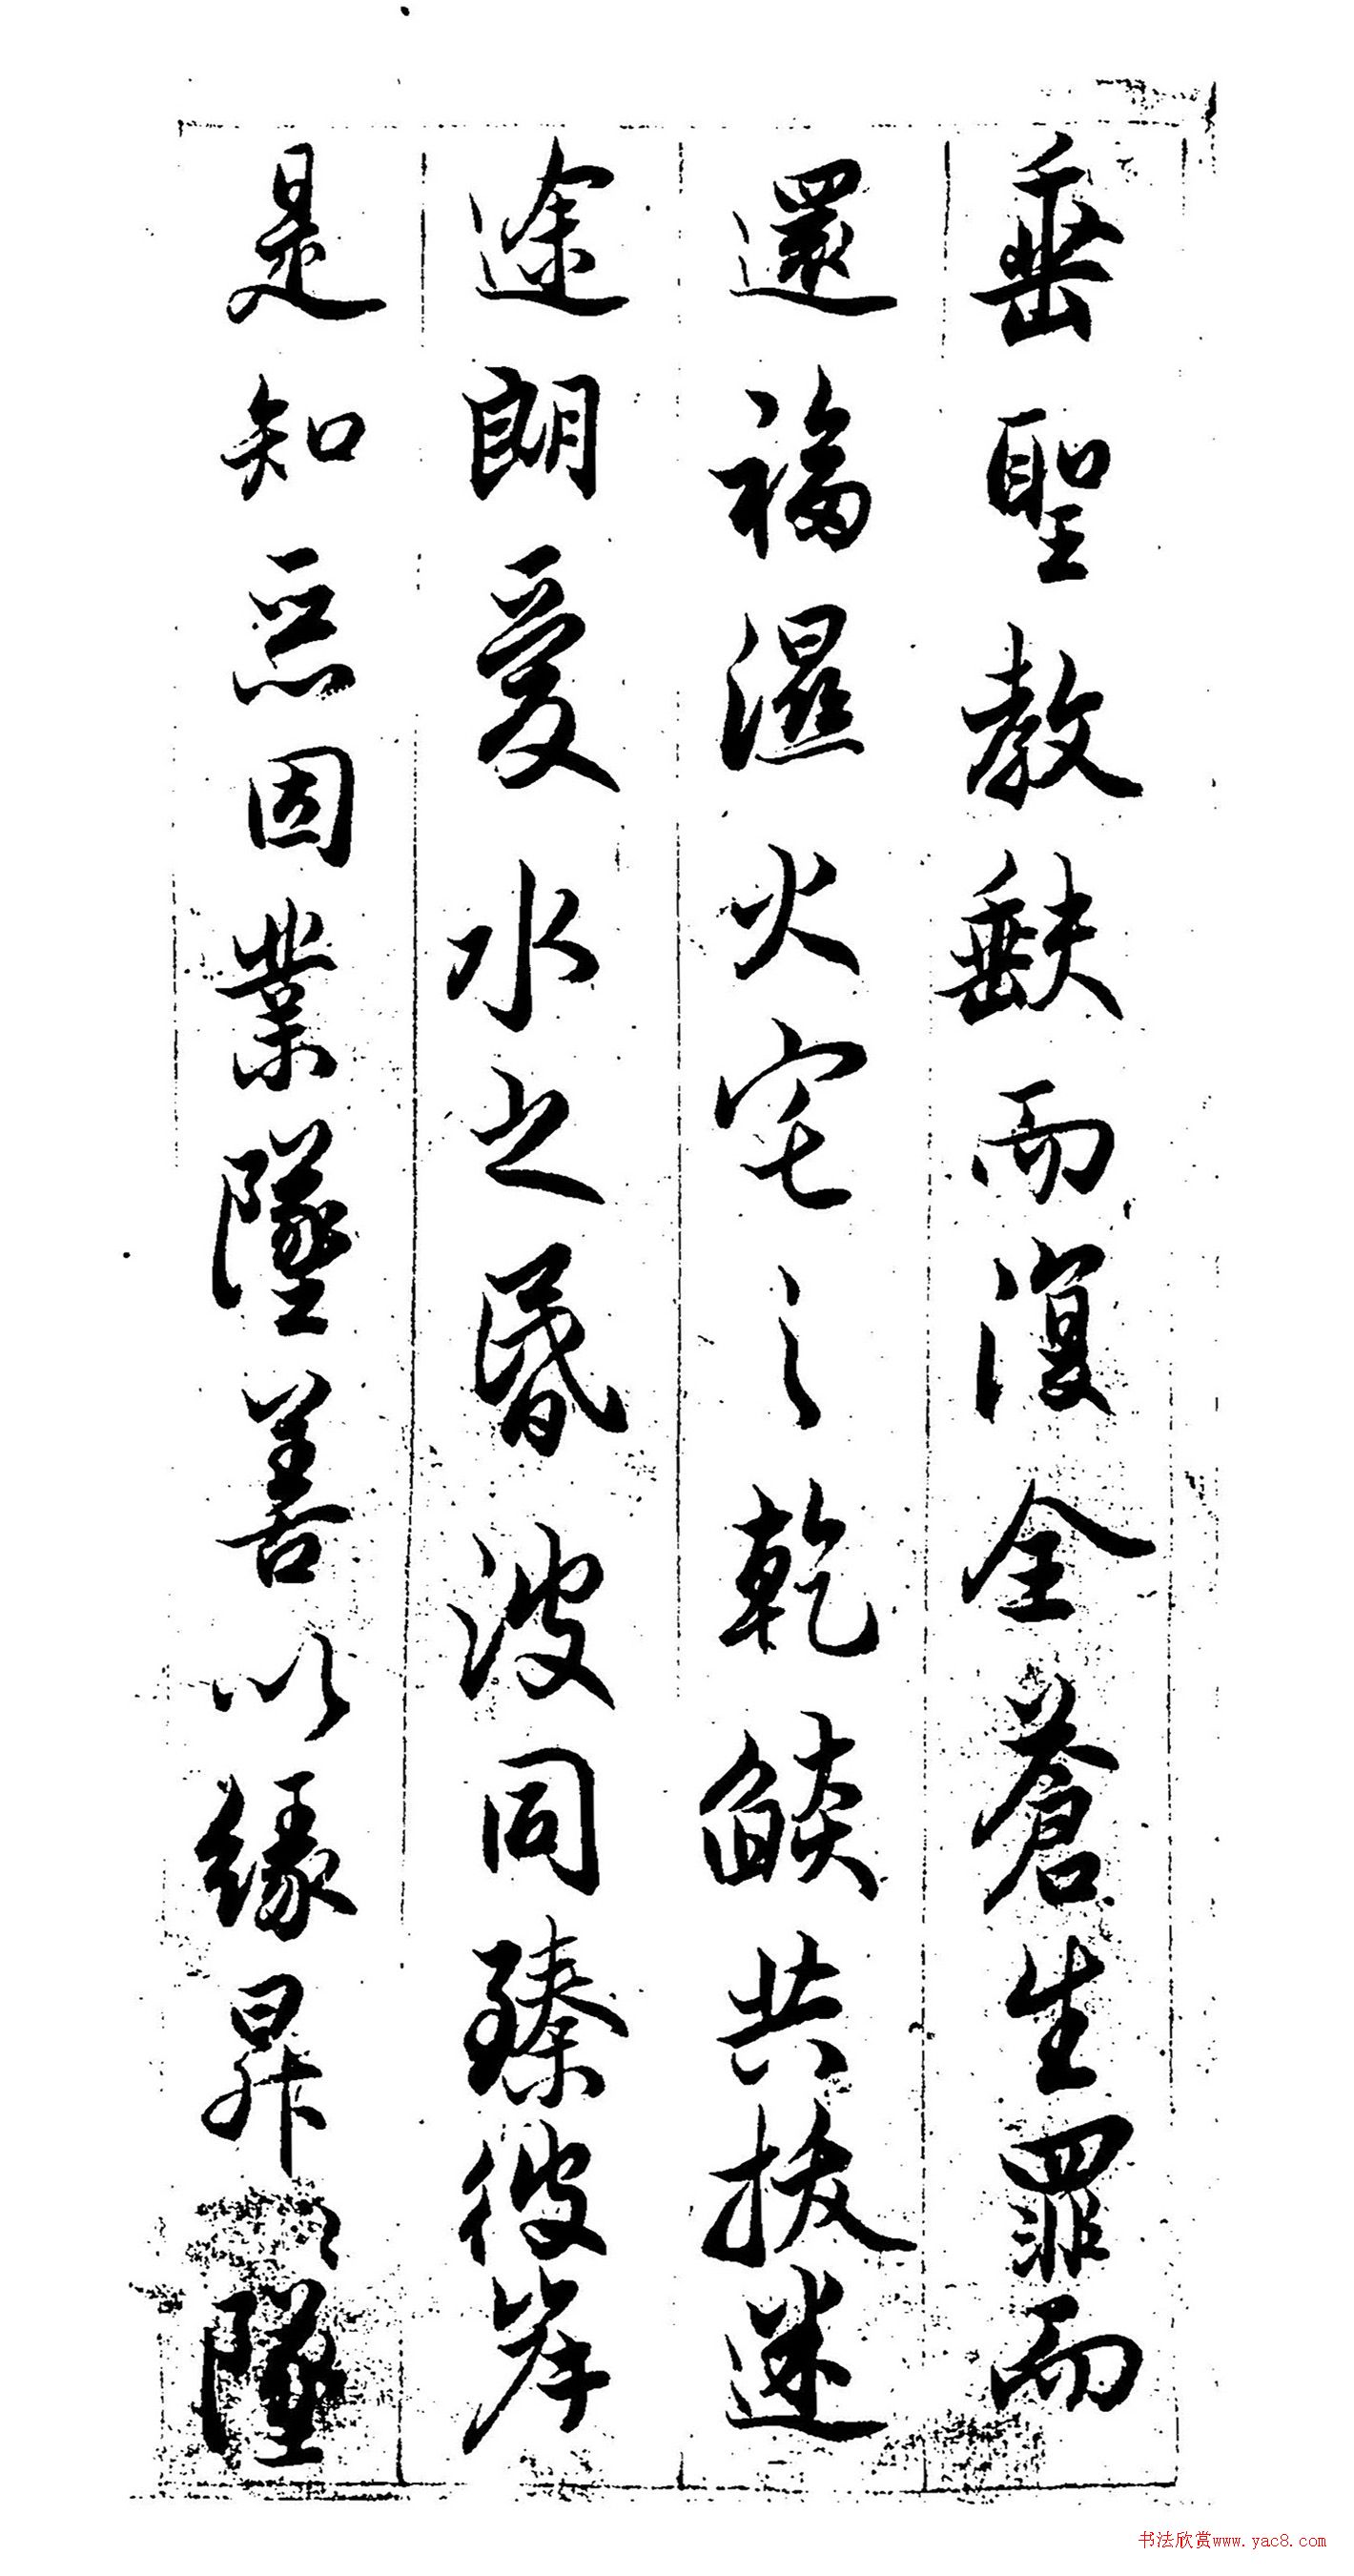 垂聖教缺而復全蒼生罪而
還福濕火宅之乾燄共拔迷
途朗愛水之昏波同臻彼岸
是知惡因業墜善以緣昇昇墜
书法欣赏www.yac8.com